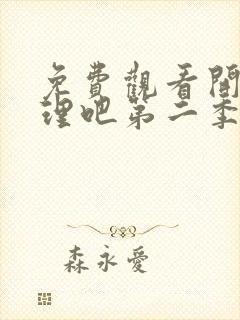 免費觀看開
理吧第二季
森永愛